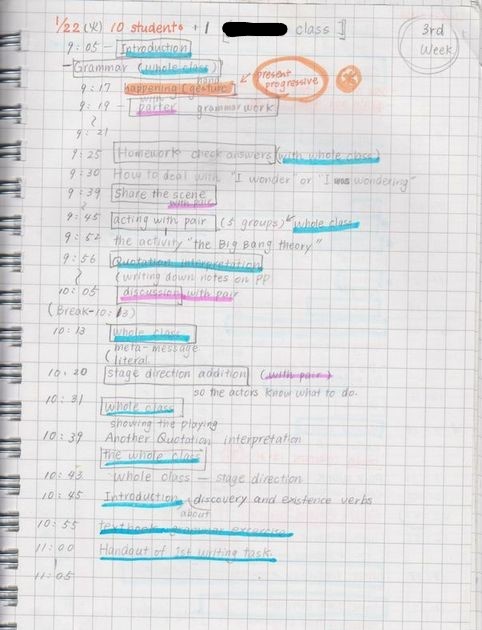 1/22 (火) 10 students + 1 [ class ]
3rd Week
9:05 - Introduction
- Grammar (whole class)
9:17 happening [gesture] hand
present progressive
9:19 - with parter grammar work
~
9:21
9:25 Homework check answers (with whole class)
9:30 How to deal with "I wonder" or "I was wondering"
9:39 Share the scene
with pair
~
9:45 acting with pair (5 groups) whole class
9:52 the activity "the Big Bang theory"
9:56 Quotation interpretation
~ (writing down notes on PP
10:05 discussion with pair
(Break-10:13)
10:13 whole class
meta-message
(literal
10:20 stage direction addition (with pair)
so the actors know what to do.
10:31 whole class
showing the playing
10:39 Another Quotation interpretation
the whole class
10:43 whole class — stage direction
10:45 Introduction discovery and existence verbs
about
10:55 textbook grammar exercise
11:00 Handout of 1st writing task
11:05